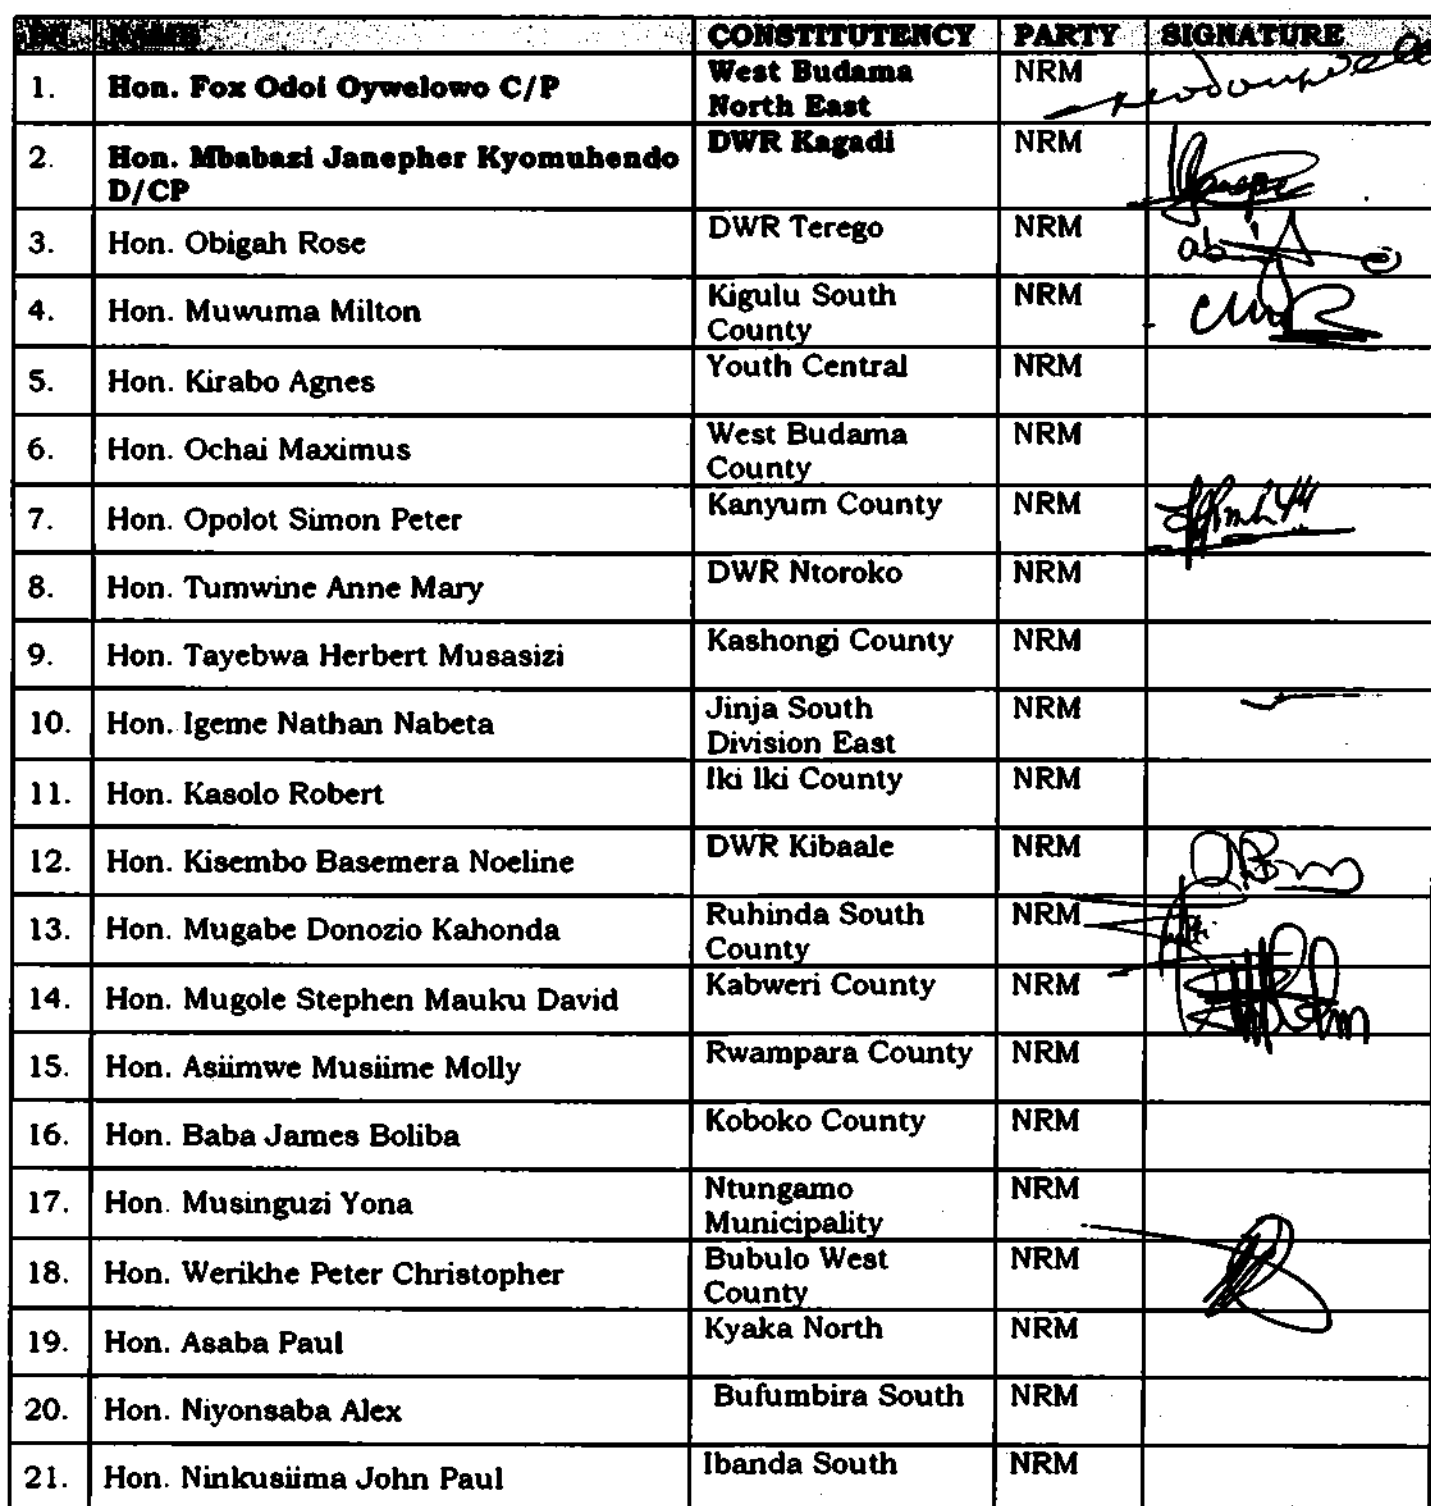 SN. NAME CONSTITUTENCY PARTY SIGNATURE
1. Hon. Fox Odoi Oywelowo C/P West Budama NRM
North East
2. Hon. Mbabazi Janepher Kyomuhendo DWR Kagadi NRM
D/CP
3. Hon. Obigah Rose DWR Terego NRM
4. Hon. Muwuma Milton Kigulu South NRM
County
5. Hon. Kirabo Agnes Youth Central NRM
6. Hon. Ochai Maximus West Budama NRM
County
7. Hon. Opolot Simon Peter Kanyum County NRM
8. Hon. Tumwine Anne Mary DWR Ntoroko NRM
9. Hon. Tayebwa Herbert Musasizi Kashongi County NRM
10. Hon. Igeme Nathan Nabeta Jinja South NRM
Division East
11. Hon. Kasolo Robert Iki Iki County NRM
12. Hon. Kisembo Basemera Noeline DWR Kibaale NRM
13. Hon. Mugabe Donozio Kahonda Ruhinda South NRM
County
14. Hon. Mugole Stephen Mauku David Kabweri County NRM
15. Hon. Asiimwe Musiime Molly Rwampara County NRM
16. Hon. Baba James Boliba Koboko County NRM
17. Hon. Musinguzi Yona Ntungamo NRM
Municipality
18. Hon. Werikhe Peter Christopher Bubulo West NRM
County
19. Hon. Asaba Paul Kyaka North NRM
20. Hon. Niyonsaba Alex Bufumbira South NRM
21. Hon. Ninkusiima John Paul Ibanda South NRM